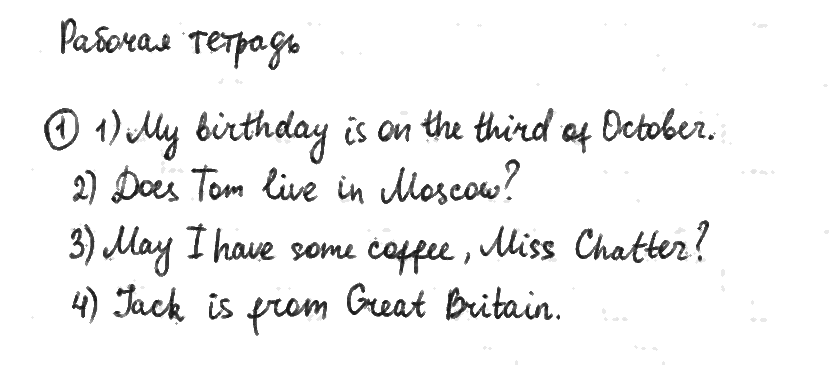 Рабочая тетрадь
① 1) My birthday is on the third of October.
2) Does Tom live in Moscow?
3) May I have some coffee, Miss Chatter?
4) Jack is from Great Britain.